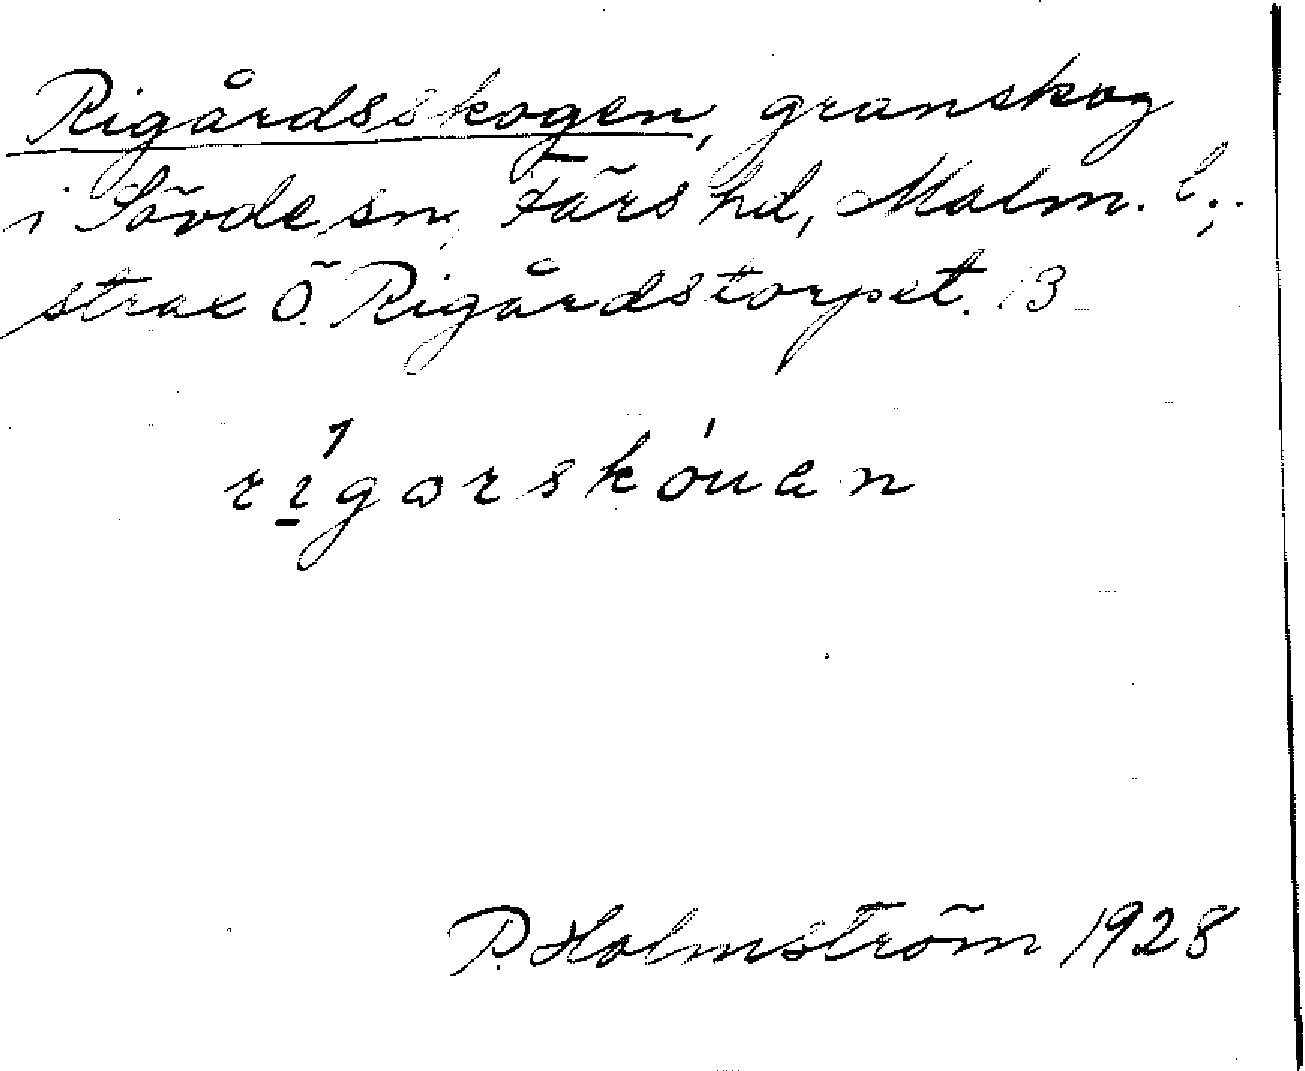 Rigårdsskogen, granskog
i Sövde sn, Färs hd, Malm. l.;
strax Ö. Rigårdstorpet. 13
rígarskóuen
P. Holmström 1928